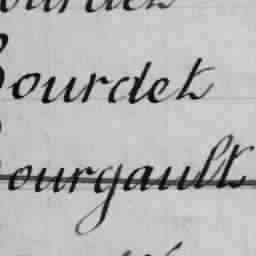 Bourdet
Bourgault